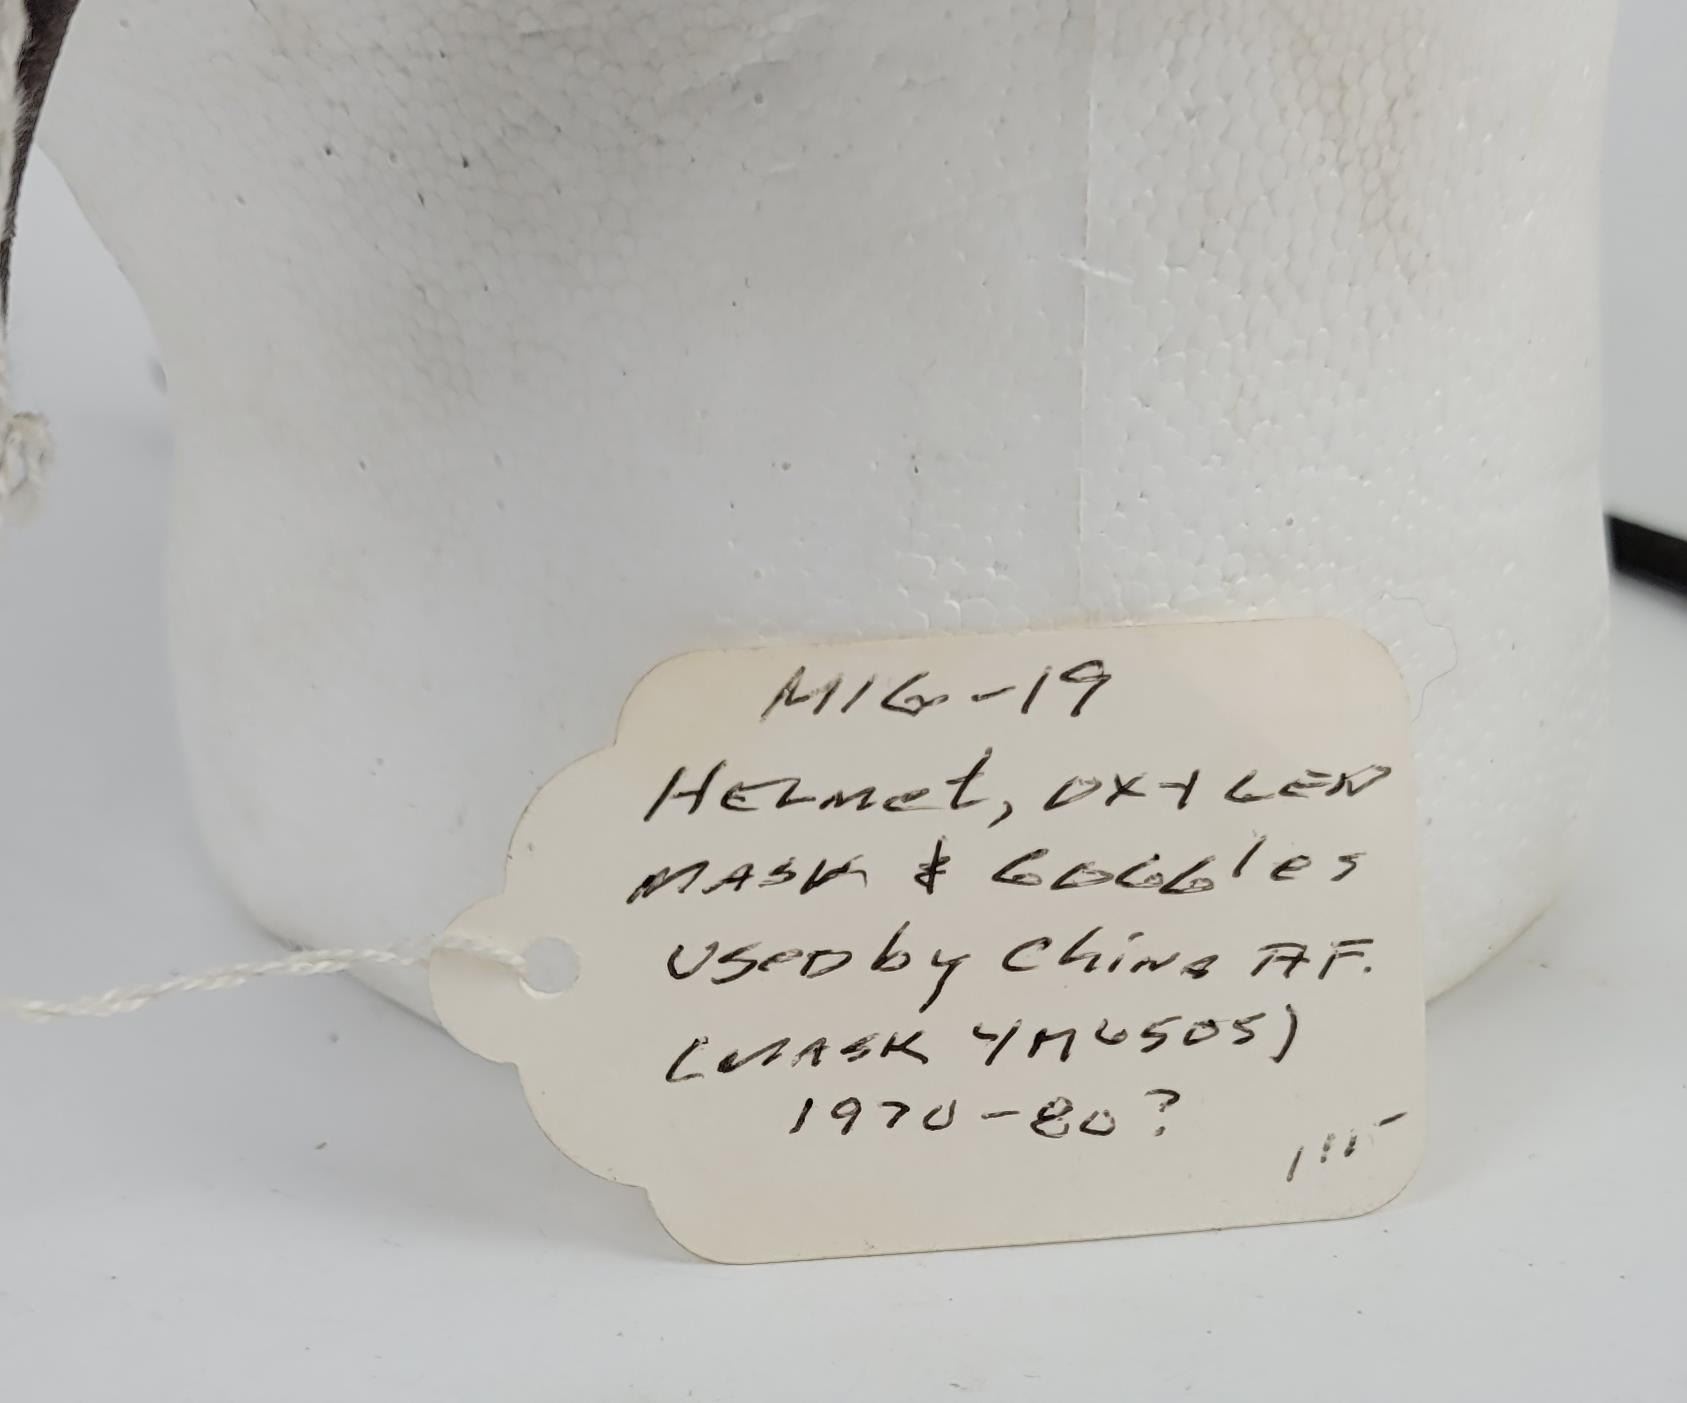 MIG-19
HELMet, OXYGEN
MASK & GOGGles
USED by China AF.
(MASK YM6505)
1970-80?